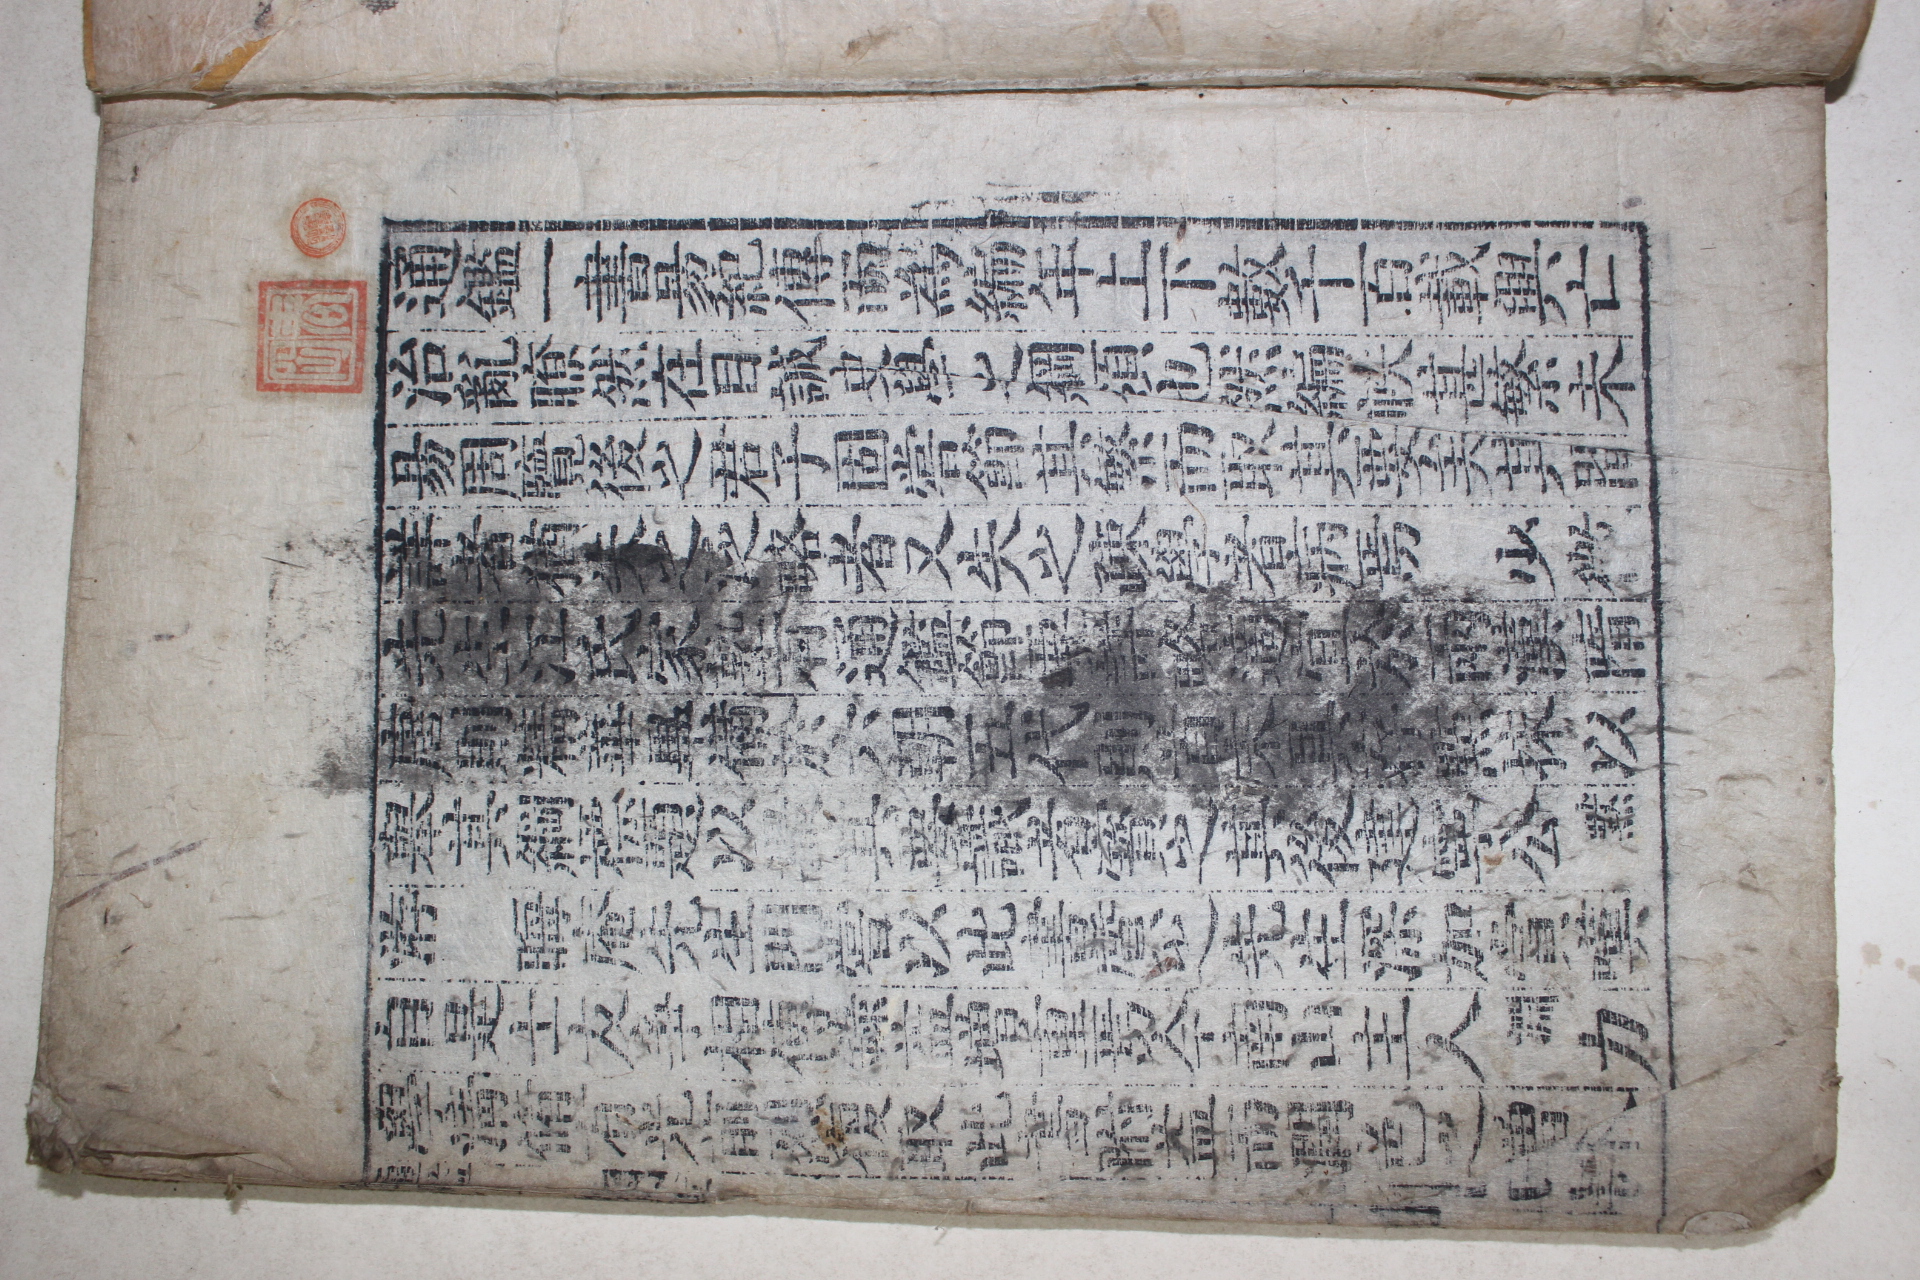 通鑑一書易紀傳而爲編年上下數千百載興亡
治亂瞭然在目誠史學之綱領也然編帙甚繁未
易周覽後之君子固嘗節其繁而取其要矣其間
詳者猶失之泛略者又失之疎學者病焉 少微
先生江氏家塾有通鑑節要詳略適宜於兩漢隋
唐則精華畢備於六朝五代則首末具存點抹以
擧其綱標題以撮其要識者寶之其後建寧公默
游 晦庵先生門嘗以此書質之先生深加賞嘆
自是士友爭相傳錄益增重焉今南山主人淵力
學清修有光前烈復取此書附益而潤色之增